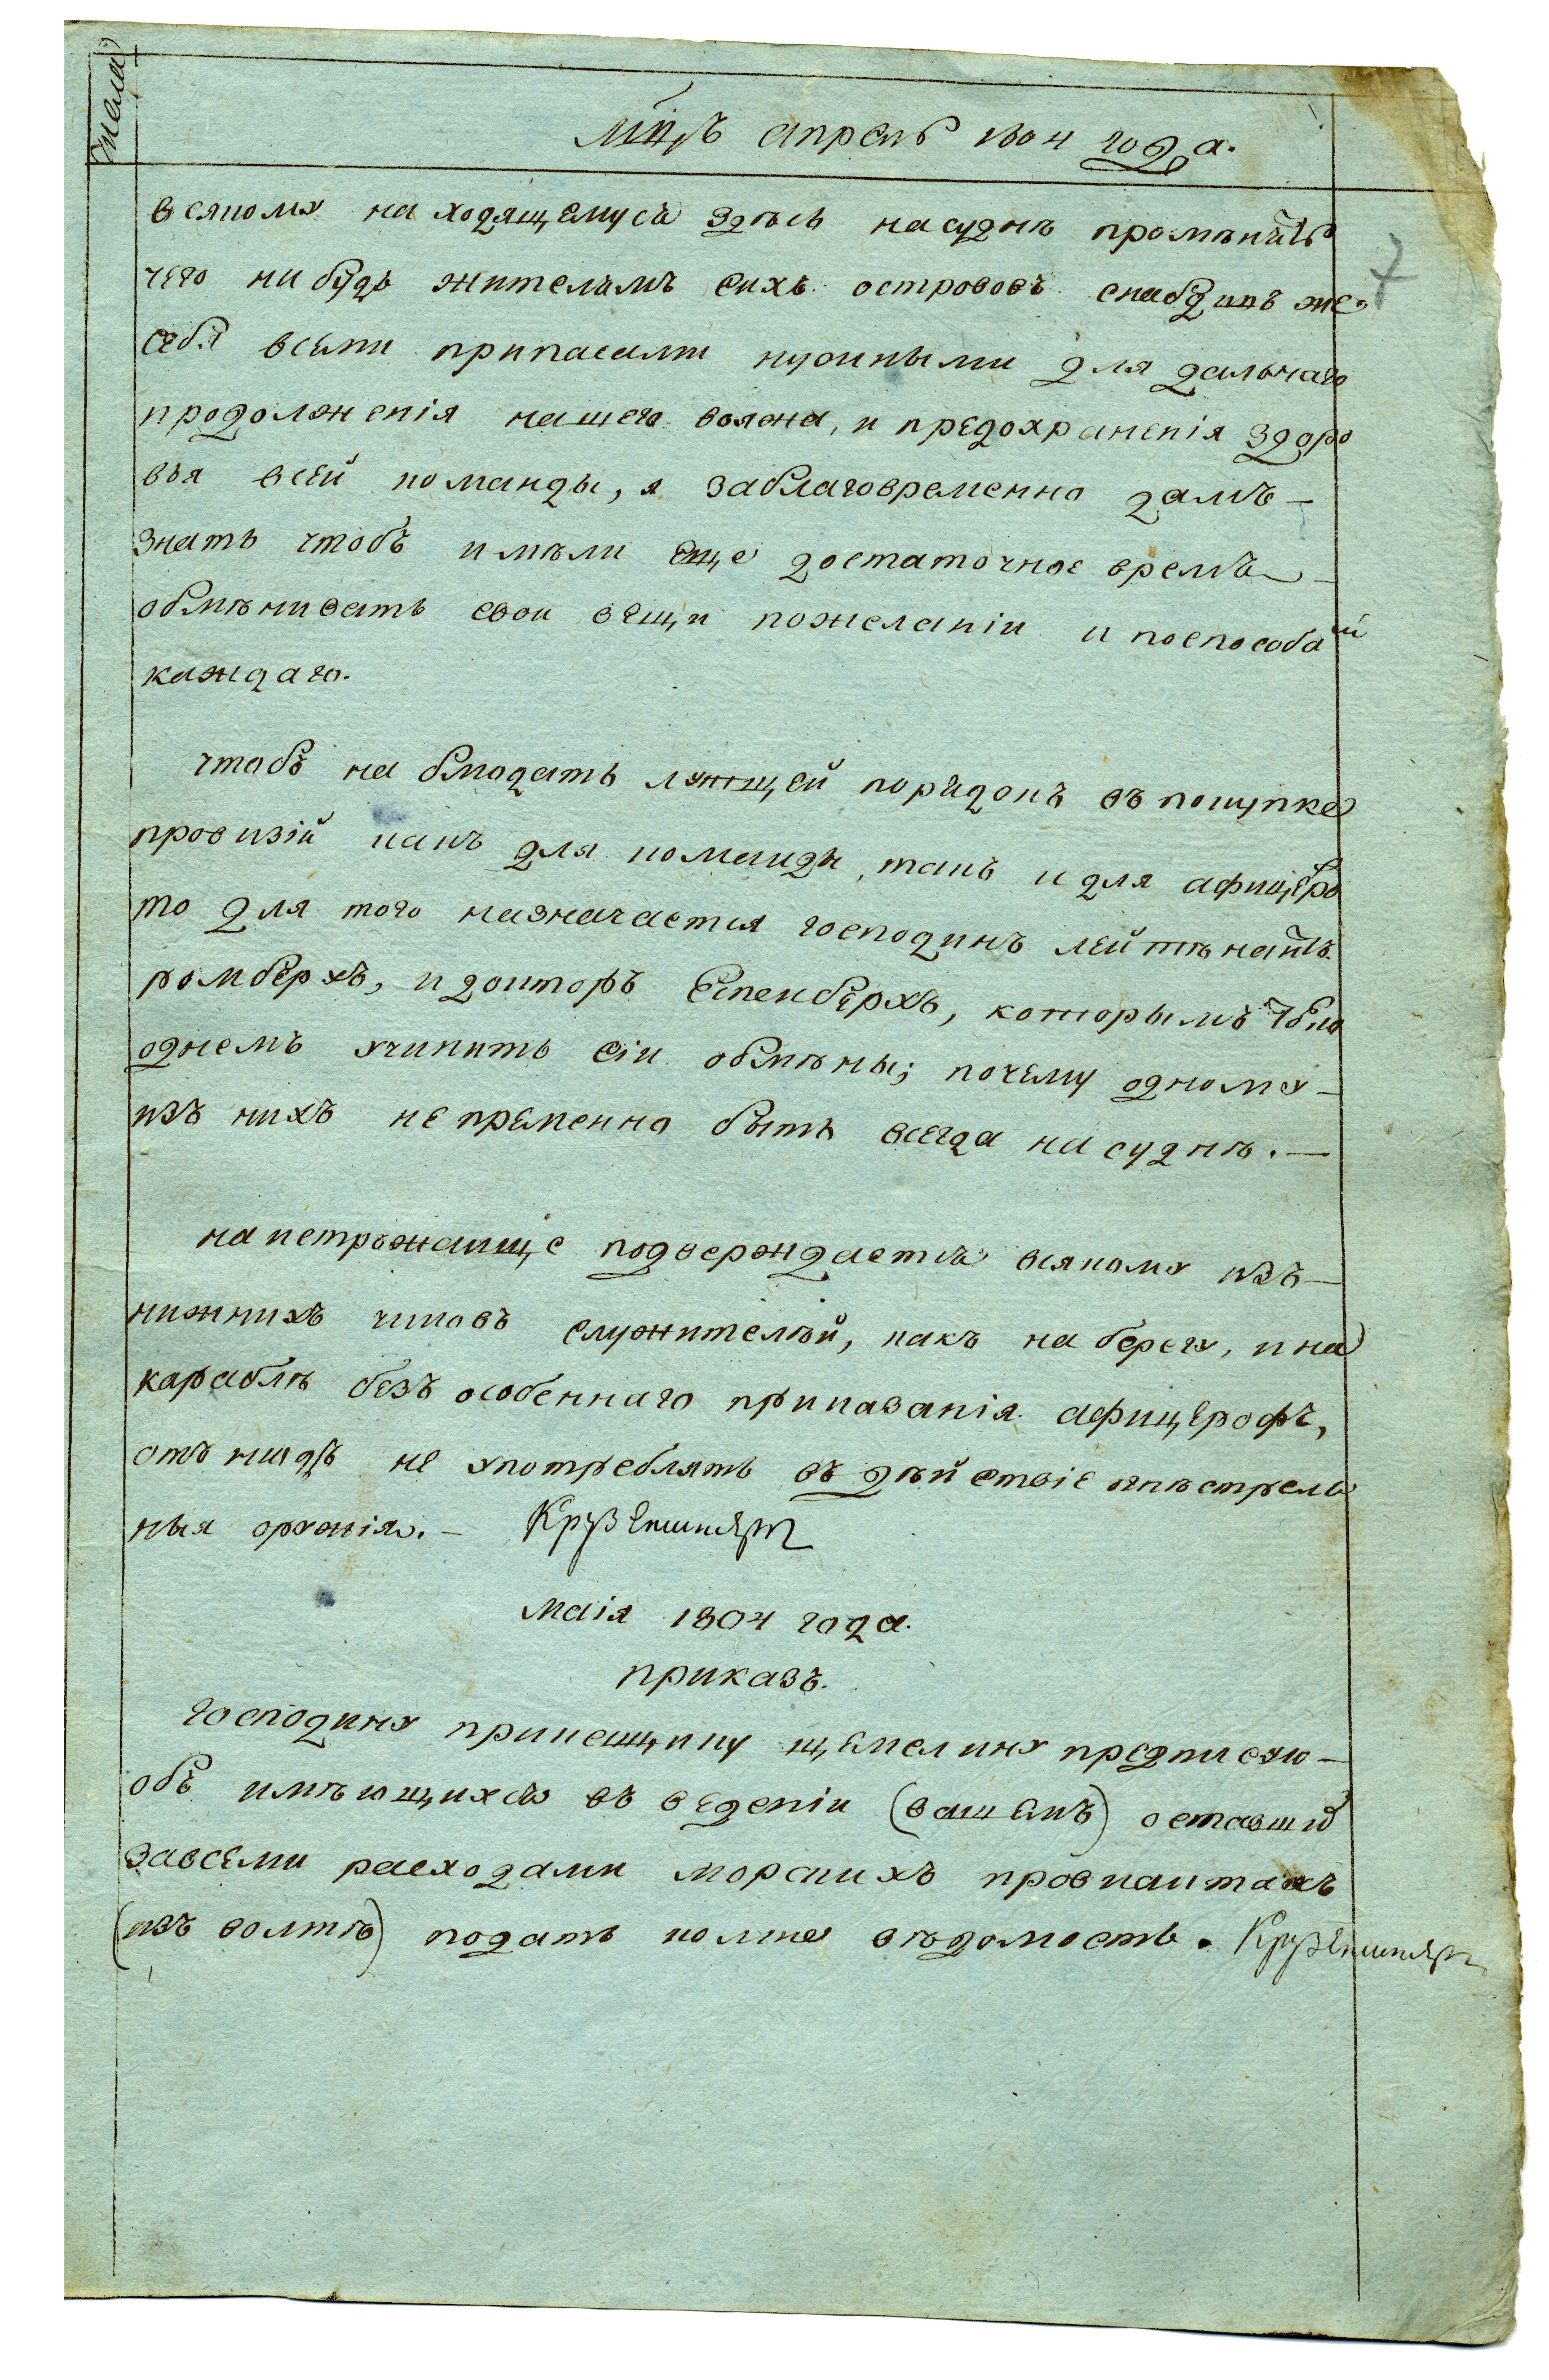 числа
Мцъ апрель 1804 года.
7
всякому находящемуся здѣсь на суднѣ промѣнять
чего нибудь жителямъ сихъ острововъ снабдивъ же
себя всѣми припасами нужными для дальнаго
продолженія нашего вояжа, и предохраненія здоро
вья всей команды, я заблаговременно дамъ —
знать чтобъ имѣли еще достаточное время —
обмѣнивать свои вещи по желаніи и по способа
каждаго.
чтобъ наблюдать лутщей порядокъ въ покупке
провизій какъ для команды, такъ и для афицеро
то для того назначается господинъ лейтѣнантъ
ромберхъ, и докторъ Еспенберхъ, которымъ
однемъ учинить сіи обмѣны; почему одному —
изъ нихъ непременно быть всегда на суднѣ. —
на истрожайще подверждается всякому изъ —
нижнихъ чиновъ служителѣй, какъ на берегу, и на
караблѣ безъ особеннаго приказанія афицерофъ,
отънюдь не употреблять въ дѣйствіе огнѣстрель
ныя оружія. — Крузенштернъ
маія 1804 года.
приказъ.
господину прикещику щемелину предписую —
объ имѣющихся въ веденіи (вашемъ) оставши
за всеми расходами морскихъ провиантахъ
(изъ волтѣ) подать колте вѣдомость. Крузенштернъ